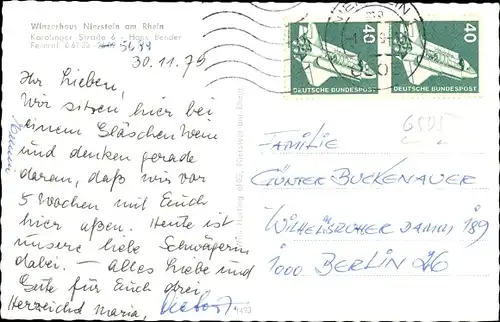 Winzerhaus Nierstein am Rhein
Karolinger Straße 6 - Hans Bender
Fernruf 0 61 33 - 5699
30.11.79
Ihr Lieben,
Wir sitzen hier bei
einem Gläschen Wein
und denken gerade
daran, daß wir vor
5 Wochen mit Euch
hier aßen. Heute ist
unsere liebe Schwägerin
dabei. – Alles Liebe und
Gute für Euch drei,
Herzlichst Maria,
40
40
DEUTSCHE BUNDESPOST
DEUTSCHE BUNDESPOST
6505
FAMILIE
GÜNTER BUCKENAUER
WILHELMSRUHER DAMM 189
1000 BERLIN 26